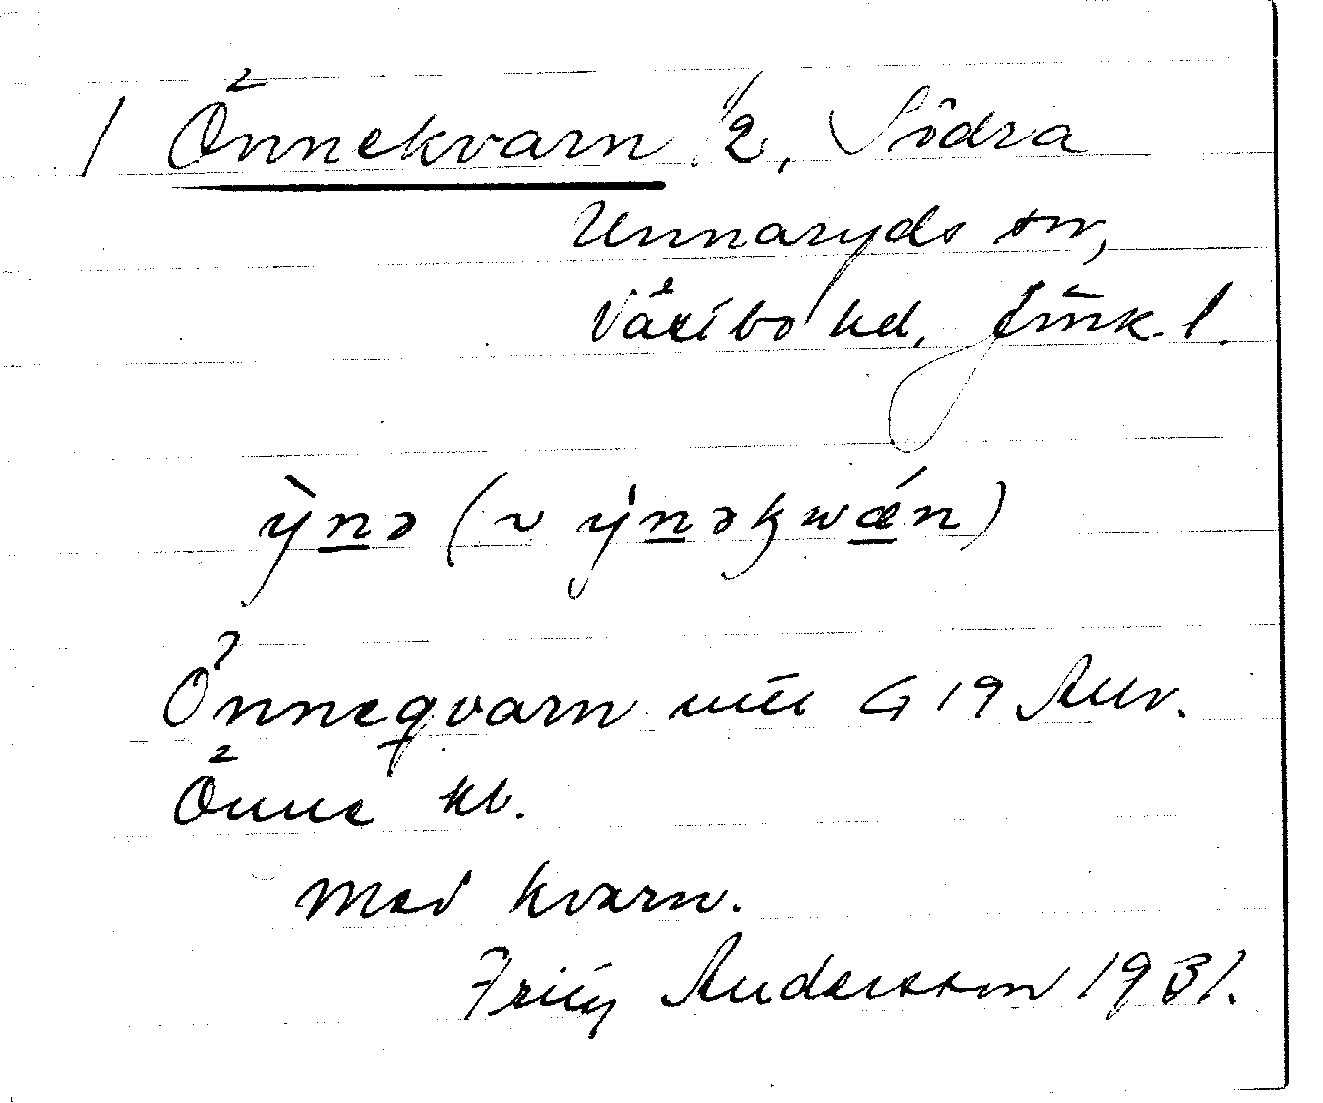 / Önnekvarn 1/2, Södra
Unnaryds sn,
Västbo hd, Jönk. l.
ỳnə (~ ýnəkwǽn)
Önneqvarn utj G 19 Allv.
Önne kb.
Med kvarn.
Fritz Andersson 1931.